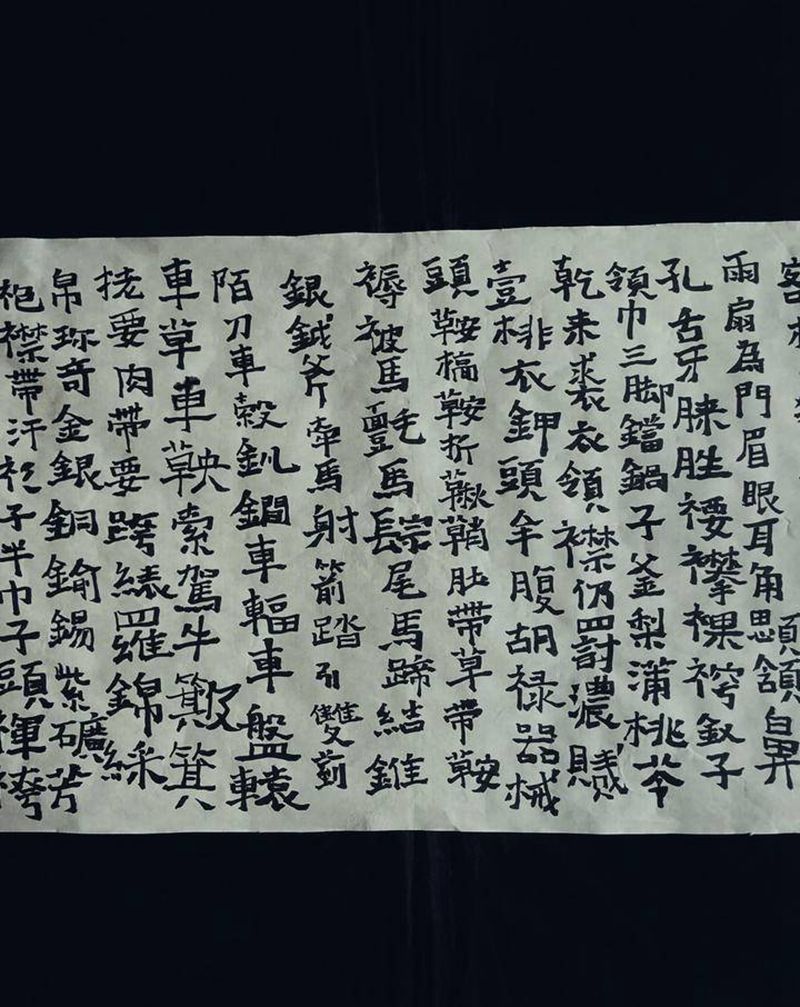 客
雨扇為門眉眼耳角思頟頷鼻
孔舌牙脨胜䙅襻袴釵子
領巾三脚鐺鍋子釜梨蒲桃苓
乾来裘衣領襟仍四討濃賎
壹排衣鉀頭牟腹胡禄器械
頭鞍槁鞍折鞦鞘肚帶草帶鞍
褥被馬馬騣尾馬蹄結錐
銀鉞斧牽馬射箭踏引雙剪
陌刀車轂釧鐗車輻車盤轅
車草車鞅索駕牛簸箕
揽要肉帶要跨䋺羅錦綵
帛珎奇金銀銅鍮錫紫礦芳
袍襟帶汗衫子半巾子頭褌袴